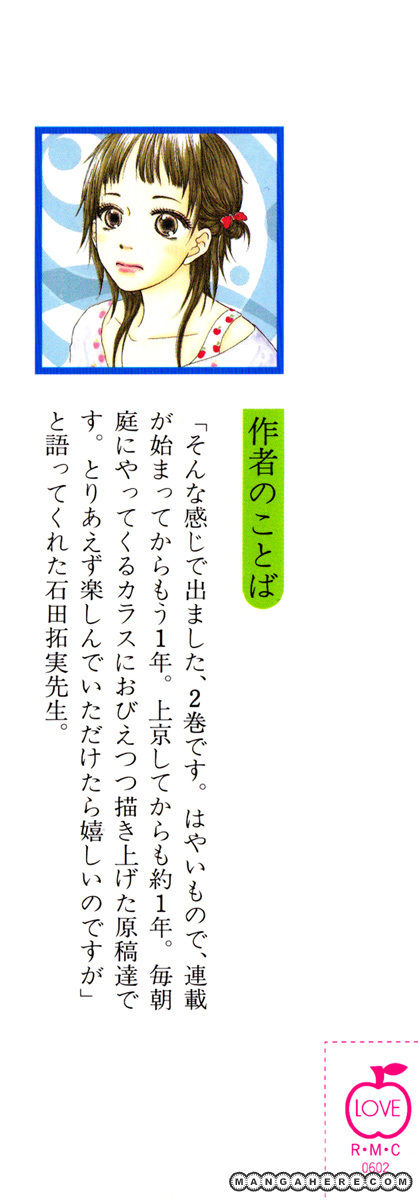 作者のことば
「そんな感じで出ました、2巻です。はやいもので、連載
が始まってからもう1年。上京してからも約1年。毎朝
庭にやってくるカラスにおびえつつ描き上げた原稿達で
す。とりあえず楽しんでいただけたら嬉しいのですが」
と語ってくれた石田拓実先生。
LOVE
R・M・C
0602
MANGAHERE.COM